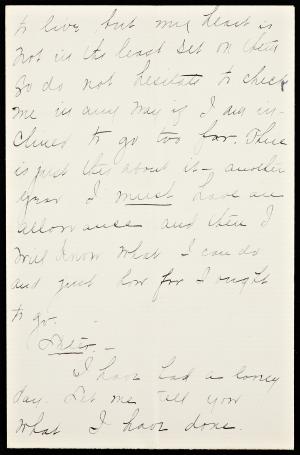 to live but my heart is
not in the least set on them
so do not hesitate to check
me in any way if I am in-
clined to go too far. There
is just this about it - another
year I must have an
allowance and then I
will know what I can do
and just how far I ought
to go. -
Later. -
I have had a lovely
day. Let me tell you
what I have done.